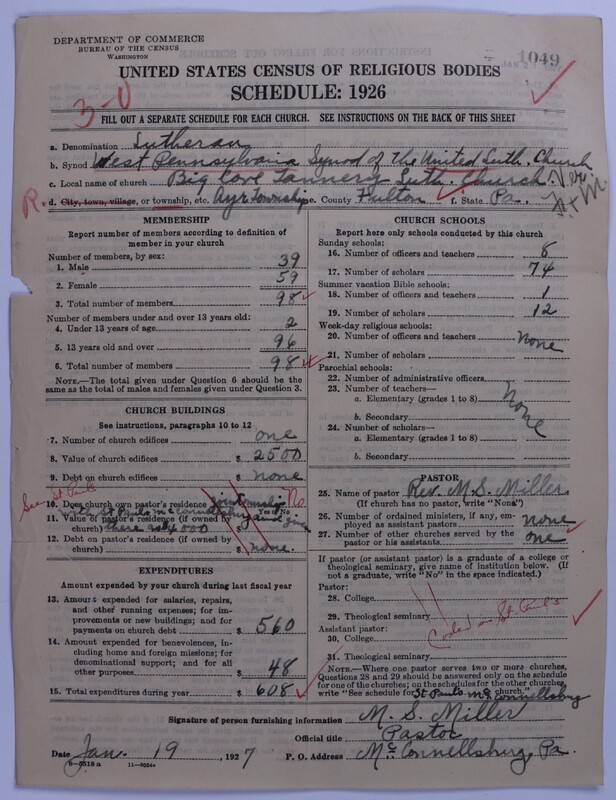 DEPARTMENT OF COMMERCE
BUREAU OF THE CENSUS
WASHINGTON
1049
UNITED STATES CENSUS OF RELIGIOUS BODIES
SCHEDULE: 1926
3-0
FILL OUT A SEPARATE SCHEDULE FOR EACH CHURCH. SEE INSTRUCTIONS ON THE BACK OF THIS SHEET
a. Denomination Lutheran
b. Synod West Pennsylvania Synod of the United Luth. Church
c. Local name of church Big Cove Tannery Luth. Church.
R. d. City, town, village, or township, etc. Ayr Township e. County Fulton f. State Pa.
MEMBERSHIP
Report number of members according to definition of
member in your church
Number of members, by sex:
1. Male 39
2. Female 59
3. Total number of members 98
Number of members under and over 13 years old:
4. Under 13 years of age 2
5. 13 years old and over 96
6. Total number of members 98
NOTE.—The total given under Question 6 should be the
same as the total of males and females given under Question 3.
CHURCH BUILDINGS
See instructions, paragraphs 10 to 12
7. Number of church edifices one
8. Value of church edifices $ 2500
9. Debt on church edifices $ none
See St Pauls
10. Does church own pastor's residence joint ownership No
Yes or No
with St Pauls McConnellsburg
11. Value of pastor's residence (if owned by
church) $
12. Debt on pastor's residence (if owned by
church) $ none.
EXPENDITURES
Amount expended by your church during last fiscal year
13. Amount expended for salaries, repairs,
and other running expenses; for im-
provements or new buildings; and for
payments on church debt $ 560
14. Amount expended for benevolences, in-
cluding home and foreign missions; for
denominational support; and for all
other purposes $ 48
15. Total expenditures during year $ 608
CHURCH SCHOOLS
Report here only schools conducted by this church
Sunday schools:
16. Number of officers and teachers 8
17. Number of scholars 74
Summer vacation Bible schools:
18. Number of officers and teachers 1
19. Number of scholars 12
Week-day religious schools:
20. Number of officers and teachers None
21. Number of scholars
Parochial schools:
22. Number of administrative officers
23. Number of teachers—
a. Elementary (grades 1 to 8) None
b. Secondary
24. Number of scholars—
a. Elementary (grades 1 to 8)
b. Secondary
PASTOR
25. Name of pastor Rev. M. S. Miller
(If church has no pastor, write "None")
26. Number of ordained ministers, if any, em-
ployed as assistant pastors none
27. Number of other churches served by the
pastor or his assistants one
If pastor (or assistant pastor) is a graduate of a college or
theological seminary, give name of institution below. (If
not a graduate, write "No" in the space indicated.)
Pastor:
28. College
29. Theological seminary
Coded on St Paul's
Assistant pastor:
30. College
31. Theological seminary
NOTE.—Where one pastor serves two or more churches,
Questions 28 and 29 should be answered only on the schedule
for one of the churches; on the schedules for the other churches,
write "See schedule for St Pauls McConnellsburg church."
Signature of person furnishing information M. S. Miller
Official title Pastor
Date Jan. 19, 1927 P. O. Address McConnellsburg, Pa.
8—5518 a 11—9554